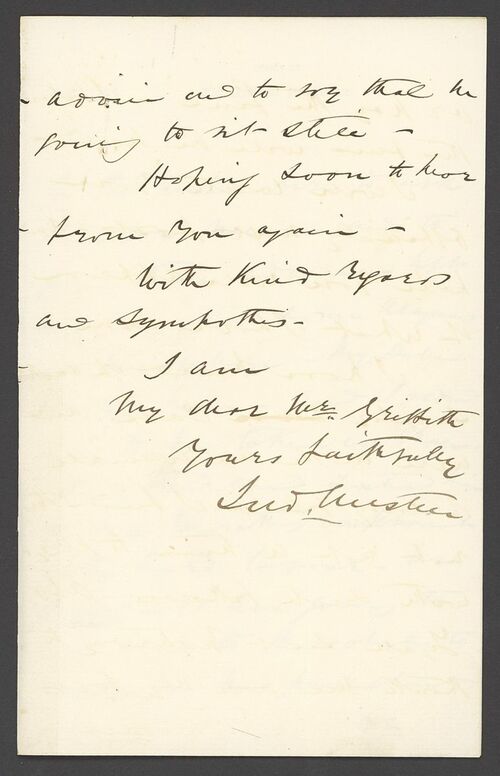 again and to say that he
going to sit still —
Hoping soon to hear
from you again —
With kind regards
and sympathies —
I am
My dear Mr. Griffith
Yours faithfully